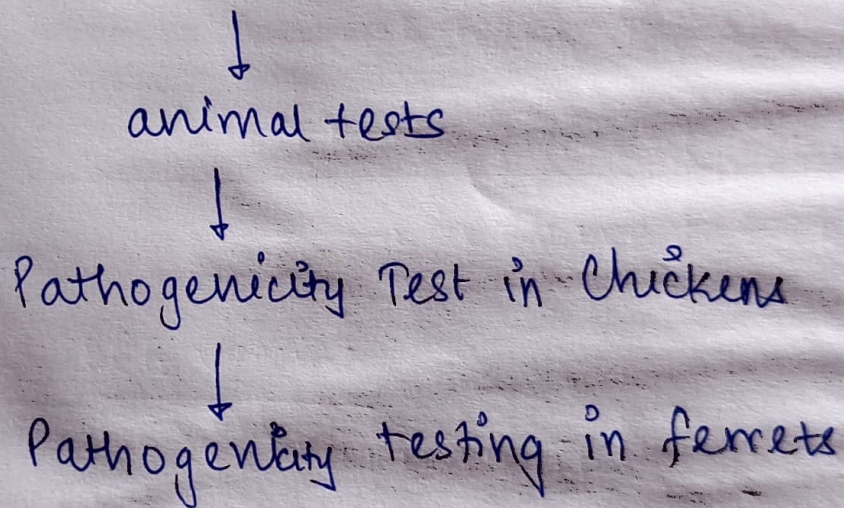 ↓
animal tests
↓
Pathogenicity Test in Chickens
↓
Pathogenicity testing in ferrets